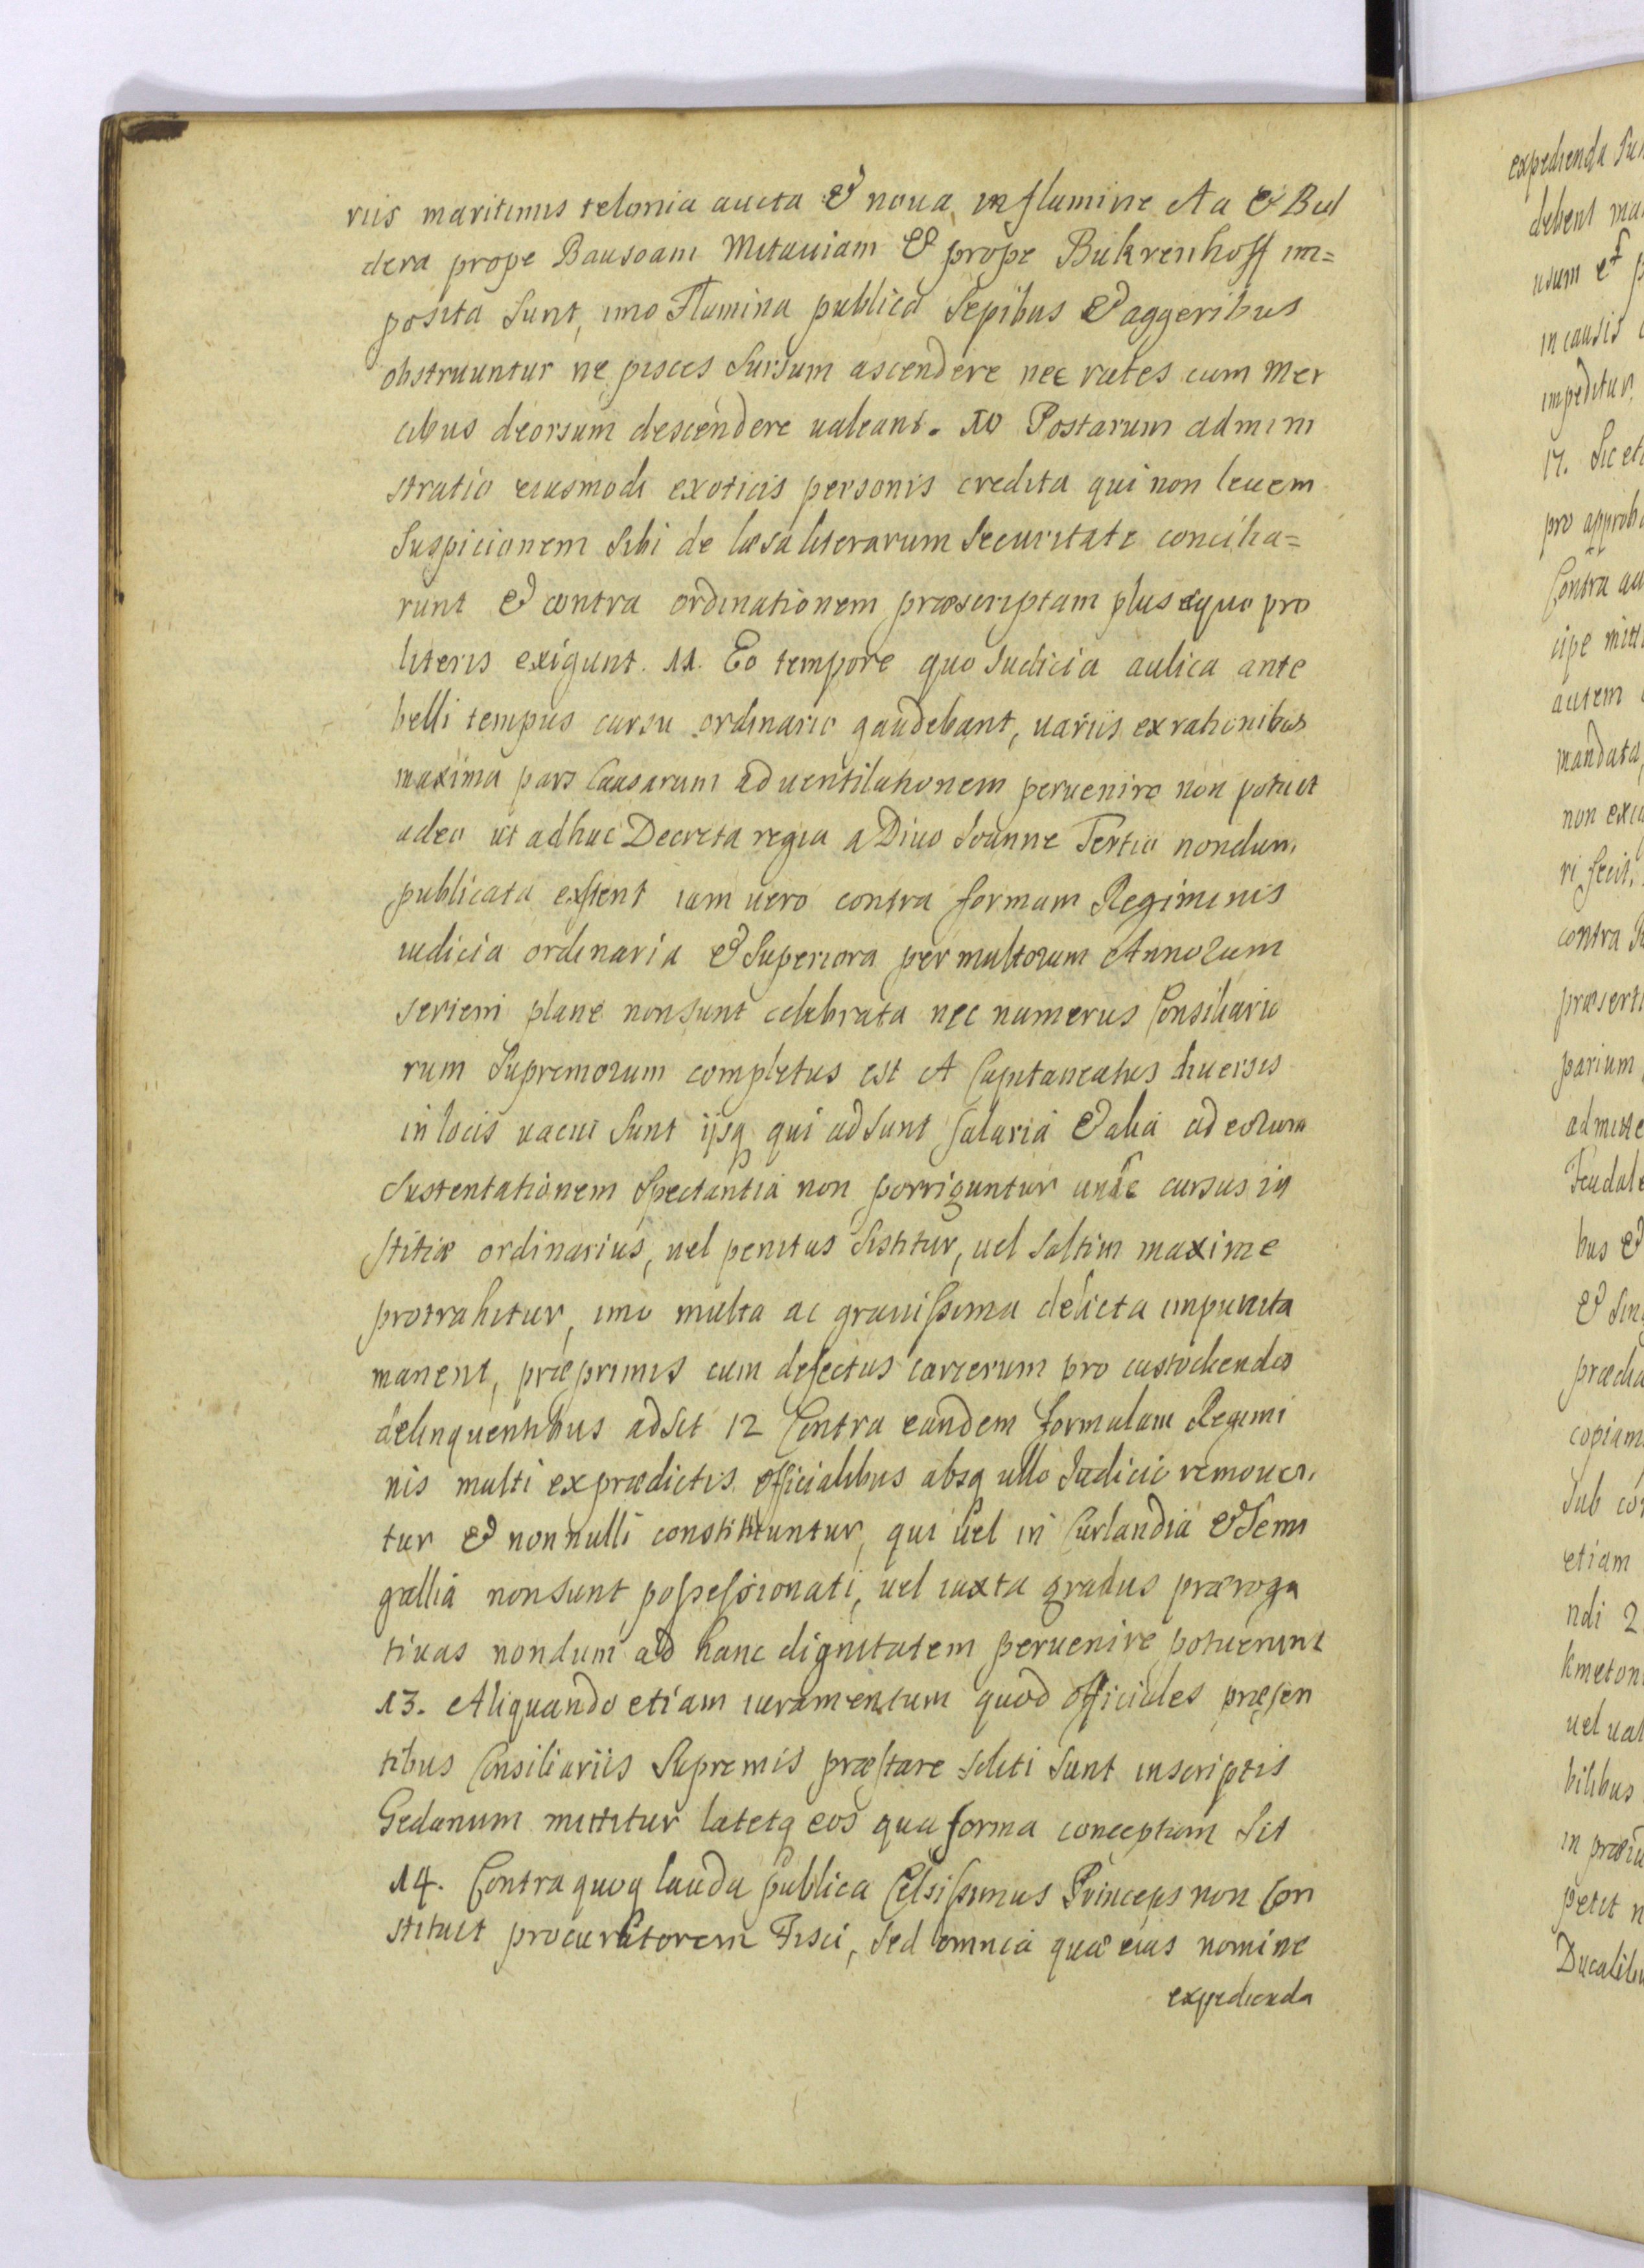 riis maritimis telonia aucta & noua in flumine Aa & Bul
dera prope Bausoam Mitauiam & prope Bukrenhoff im=
posita Sunt, imo Flumina publica Sepibus & aggeribus
obstruuntur ne pisces Sursum ascendere nec rates cum mer
cibus deorsum descendere ualeant. 10 Postarum admini
stratio eiusmodi exoticis personis credita qui non leuem
Suspicionem Sibi de læsa literarum Securitate concilia=
runt & contra ordinationem præscriptam plus æquo pro
literis exigunt. 11. Eo tempore quo Iudicia aulica ante
belli tempus cursu ordinario gaudebant, uariis ex rationibus
maxima pars Causarum ad uentilationem peruenire non potuit
adeo ut adhuc Decreta regia a Diuo Ioanne Tertio nondum
publicata extent iam uero contra formam Regiminis
iudicia ordinaria & Superiora per multorum Annorum
seriem plane non sunt celebrata nec numerus Consiliario
rum Supremorum completus est et Capitaneatus diuersis
in locis uacui Sunt ijsq qui adsunt salaria & alia ad eorum
Sustentationem Spectantia non porriguntur unde cursus iu
stitiæ ordinarius, uel penitus Sistitur, uel Saltim maxime
protrahitur, imo multa ac grauissima delicta impunita
manent, præprimis cum defectus carcerum pro custodiendis
delinquentibus adsit 12 Contra eandem formulam Regimi
nis multi ex prædictis officialibus absq ullo Iudicio remouen
tur & nonnulli constituuntur, qui uel in Curlandia & Semi
gallia non sunt possessionati, uel iuxta gradus præroga
tiuas nondum ad hanc dignitatem peruenire potuerunt
13. Aliquando etiam iuramentum quod officiales præsen
tibus Consiliariis Supremis præstare soliti Sunt inscriptis
Gedanum mittitur latetq eos qua forma conceptum Sit
14. Contra quoq lauda publica Celsissimus Princeps non con
stituit procuratorem Fisci, Sed omnia quæ eius nomine
expedienda
expedienda
debent
usum et
in causis
impeditur,
17. Sic
pro
Contra
cipe
autem
mandata,
non
ri fecit,
contra
parium
bus &
&
copiam
Sub
etiam
ndi 2
uel
bilibus
in
petit